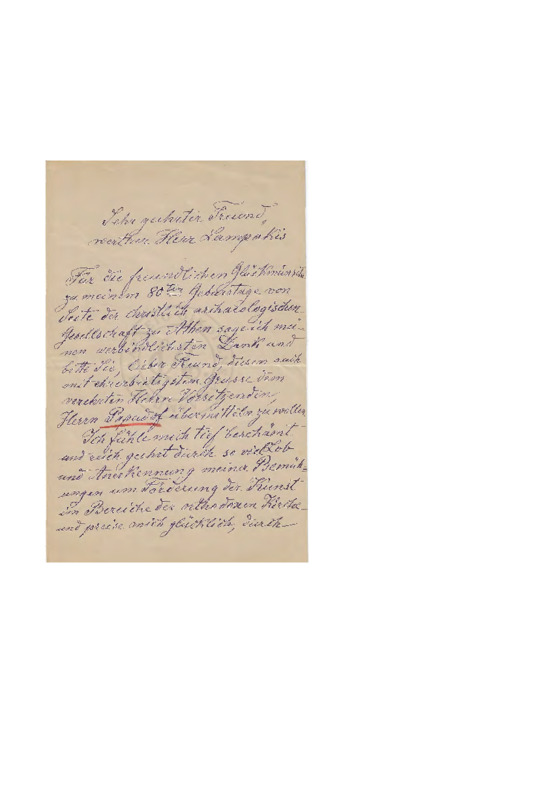 Sehr geehrter Freund,
werther Herr Lampakis
Für die freundlichen Glückwünsche
zu meinem 80ten Geburtstage von
Seite der christlich archaeologischen
Gesellschaft zu Athen sage ich mei-
nen verbindlichsten Dank und
bitte Sie, lieber Freund, diesen auch
mit ehrerbietigstem Grusse dem
verehrten Herrn Vorsitzenden,
Herrn übermitteln zu wollen
Ich fühle mich tief beschämt
und reich geehrt durch so viel Lob
und Anerkennung meiner Bemüh-
ungen um Förderung der Kunst
im Bereiche der orthodoxen Kirche
und preise mich glücklich, durch